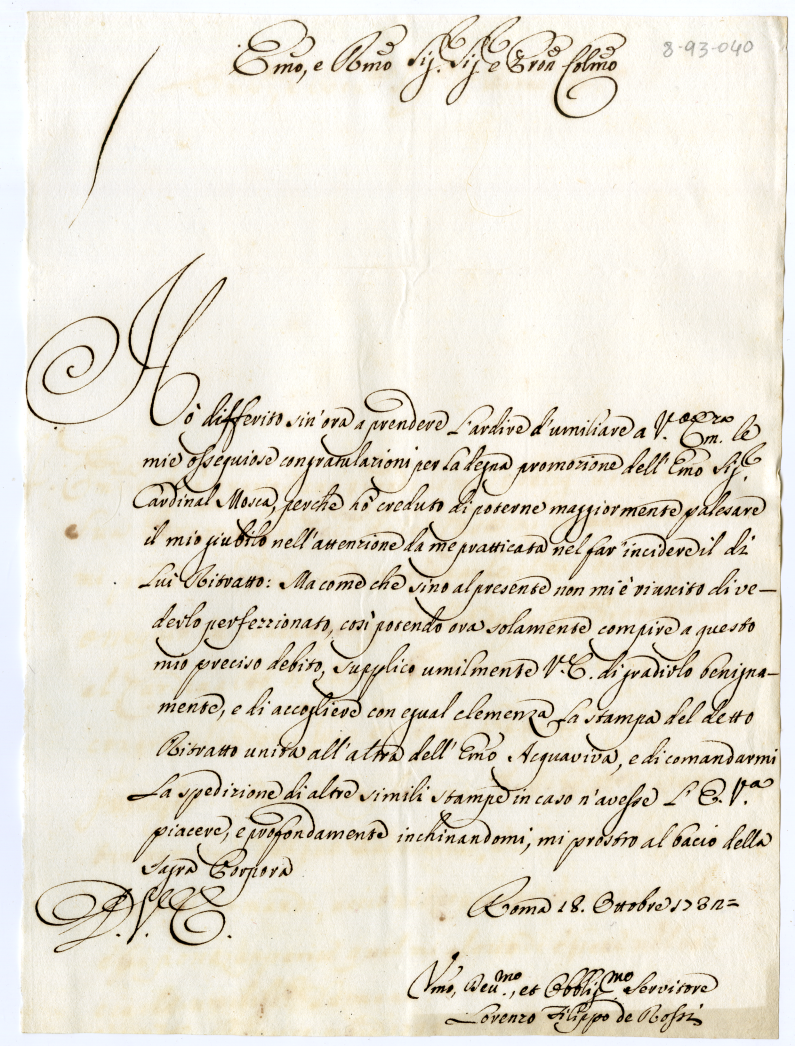 8-93-040
Emo, e Rmo Sig.r Sig.r e Pron Colmo
Hò differito sin'ora a prendere l'ardire d'umiliare a V.ra Em.za le
mie ossequiose congratulazioni per la degna promozione dell'Emo Sig.r
Cardinal Mosca, perche hò creduto di poterne maggiormente palesare
il mio giubilo nell'attenzione da me pratticata nel far'incidere il di
Lui Ritratto: Ma come che sino al presente non mi è riuscito di ve-
derlo perfezzionato, così potendo ora solamente compire a questo
mio preciso debito, supplico umilmente V.E. di gradirlo benigna-
mente, e di accogliere con egual clemenza la stampa del detto
Ritratto unita all'altra dell'Emo Acquaviva, e di comandarmi
La spedizione di altre simili stampe in caso n'avesse L'E. V.a
piacere, e profondamente inchinandomi, mi prostro al bacio della
Sagra Porpora
D. V. E.
Roma 18. Ottobre 1732=
Vmo, Deu.mo, et Obblig.mo Servitore
Lorenzo Filippo de Rossi